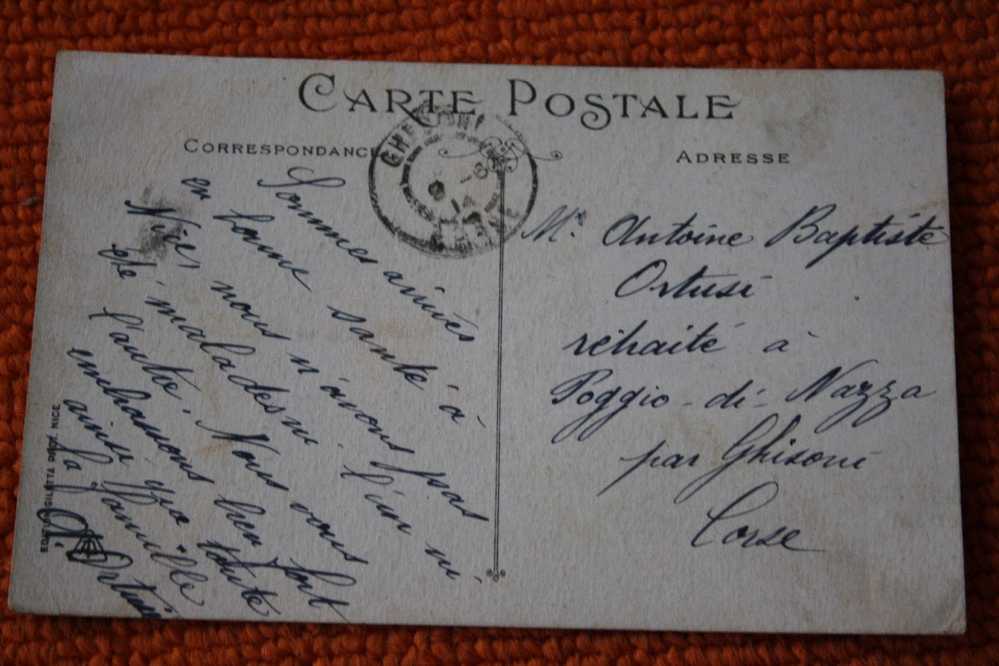 CARTE POSTALE
CORRESPONDANCE
ADRESSE
GHISONI
Sommes arrivés
en bonne santé à
Nice, nous n'avons pas
été malades ni l'un ni
l'autre. Nous vous
embrassons bien fort
ainsi que toute
la famille
Ortusi
Mr. Antoine Baptiste
Ortusi
retraité à
Poggio-di-Nazza
par Ghisoni
Corse
GILETTA
NICE